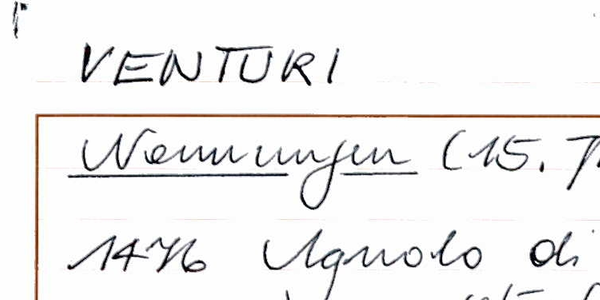 VENTURI
Nennungen (15. J
1476 Agnolo di